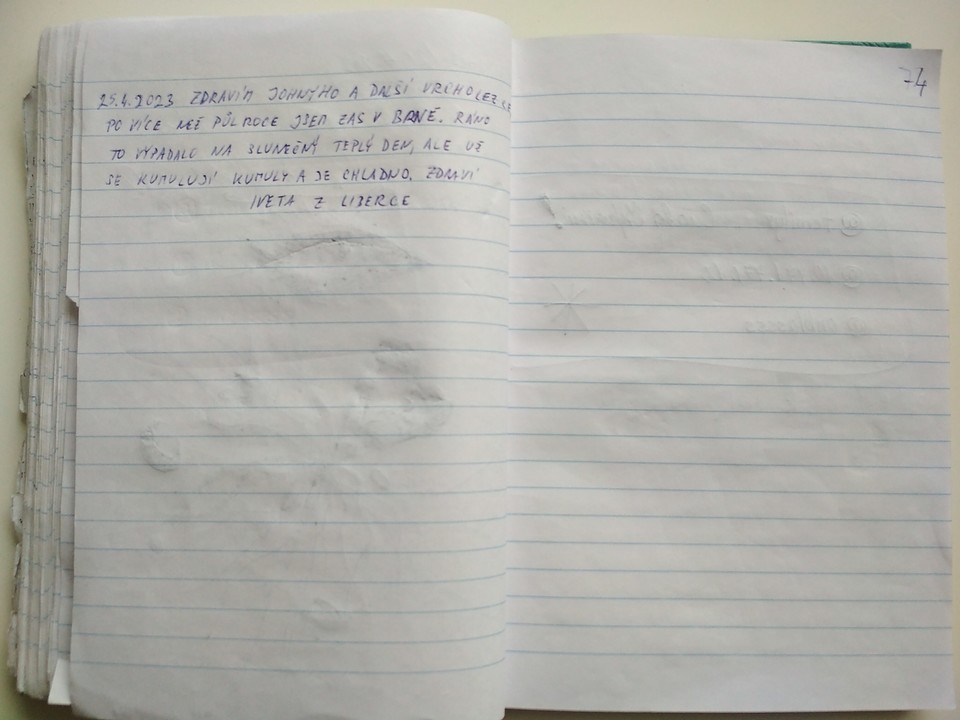 25.4.2023 ZDRAVÍM JOHNYHO A DALŠÍ VRCHOLEZCE
PO VÍCE NEŽ PŮLROCE JSEM ZAS V BRNĚ. RÁNO
TO VYPADALO NA SLUNEČNÝ TEPLÝ DEN, ALE UŽ
SE KUMULUJÍ KUMULY A JE CHLADNO. ZDRAVÍ
IVETA Z LIBERCE
74